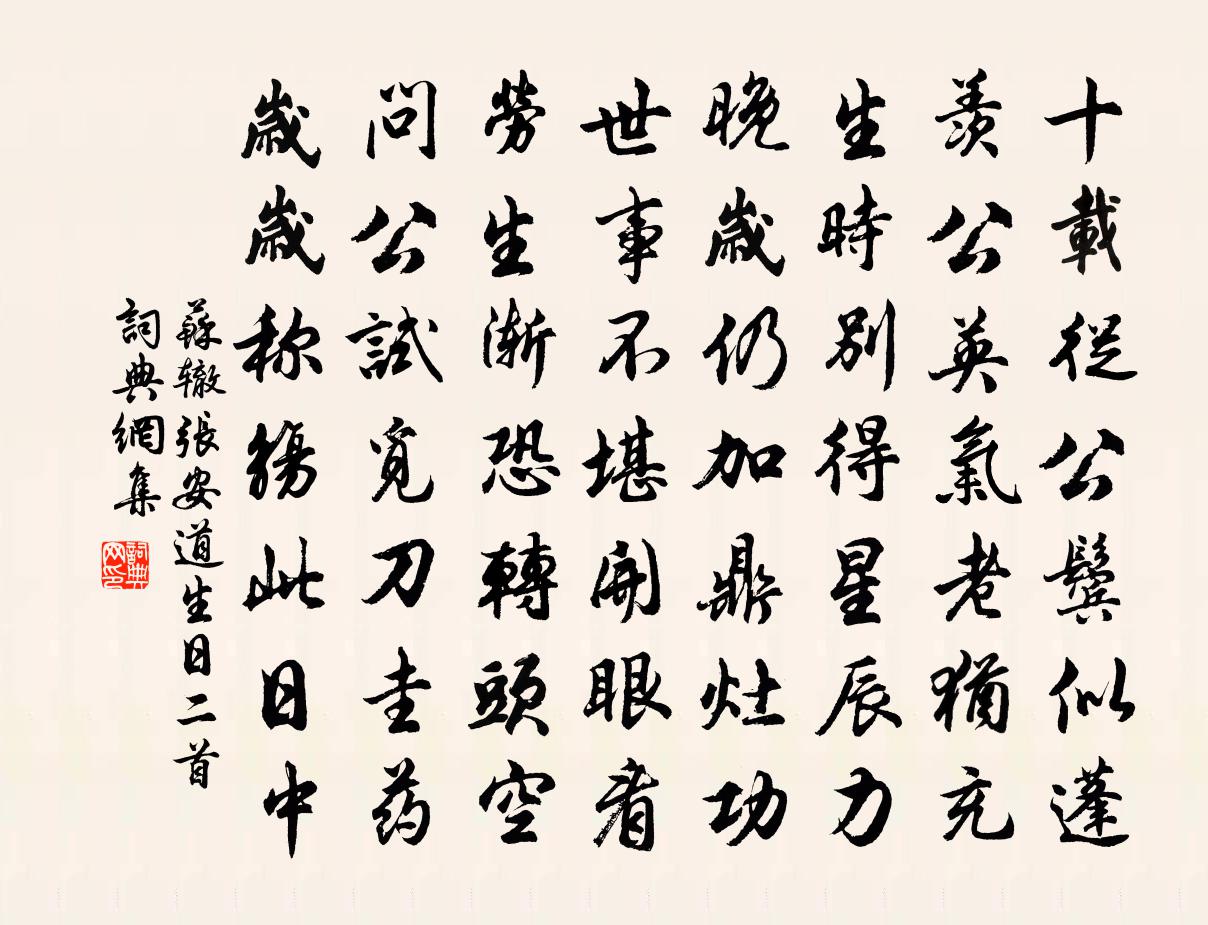 十載從公鬢似蓬
羨公英氣老猶充
生時別得星辰力
晚歲仍加鼎灶功
世事不堪開眼看
勞生漸恐轉頭空
問公試覓刀圭药
歲歲称觴此日中
蘇轍張安道生日二首
詞典網集
詞典网印